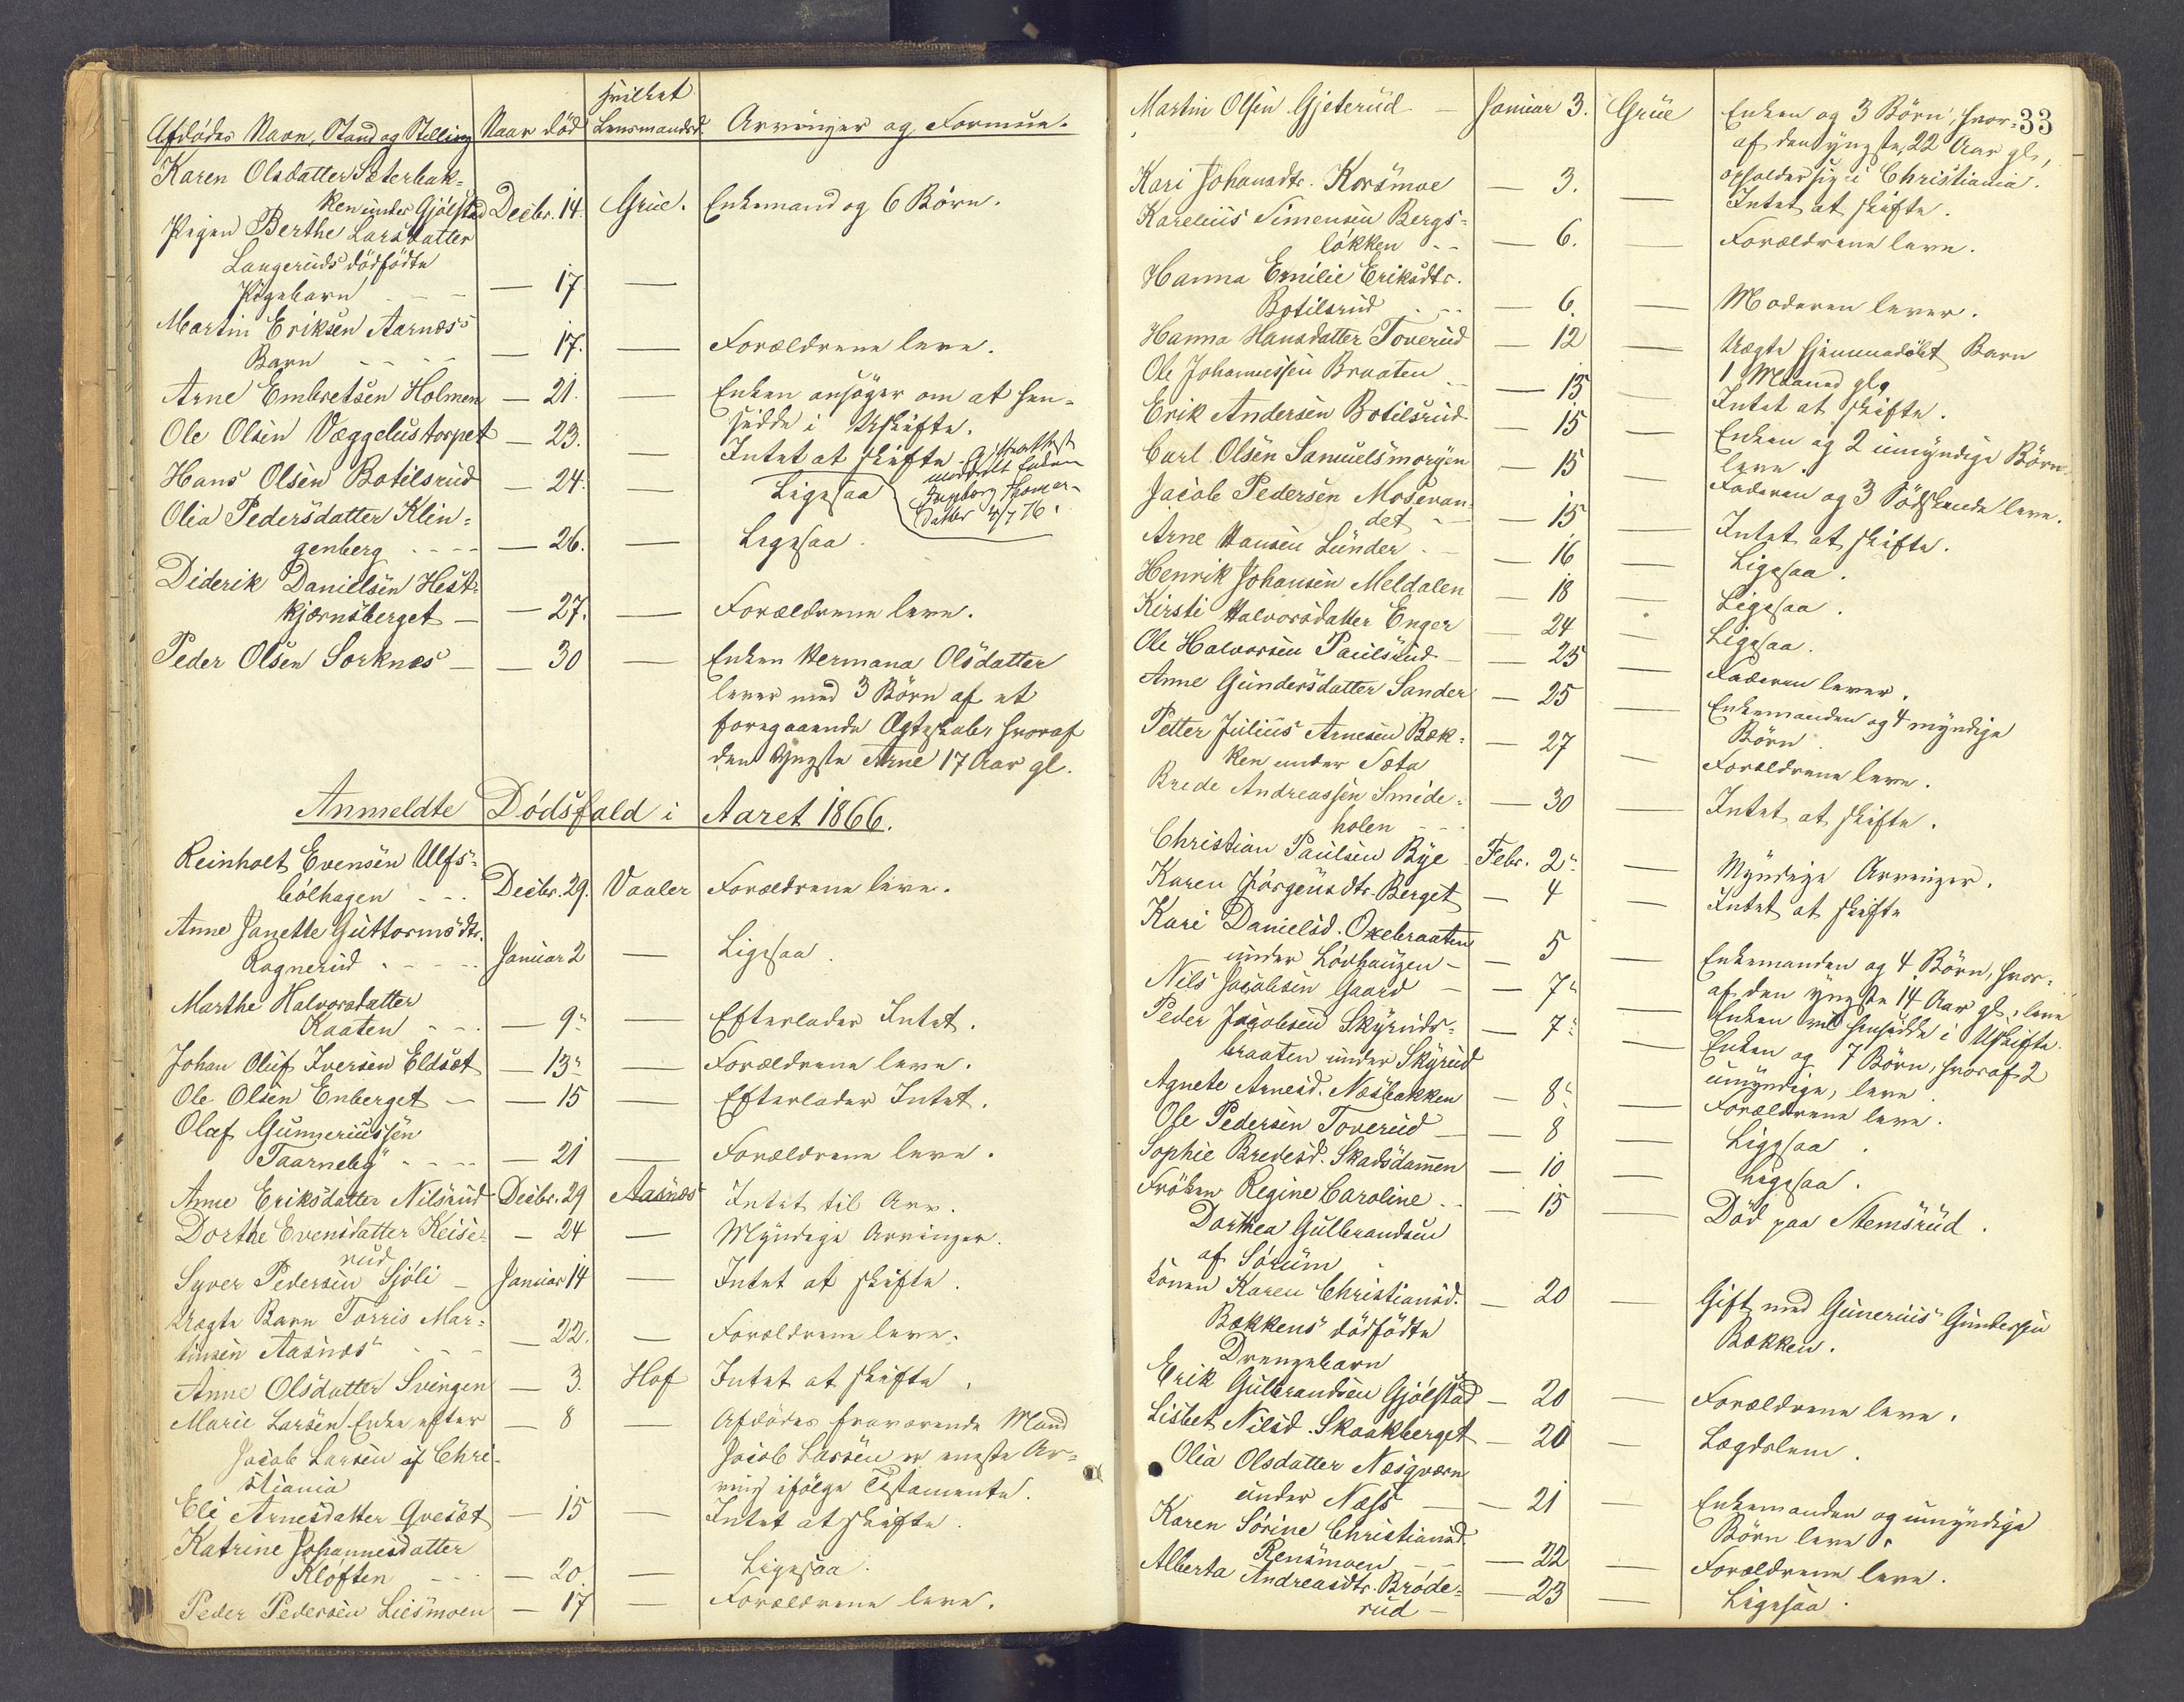 Afdødes Navn, Stand og Stilling
Naar død
Hvilket
Lensmandsd.
Arvinger og Formue.
Karen Olsdatter Sæterbak-
ken under Gjølstad Decbr. 14. Grue. Enkemand og 6 Børn.
Pigen Berthe Larsdatter
Langeruds dødfødte
Pigebarn - - — 17 —
Martin Eriksen Aarnæss
Barn - - - — 17. — Forældrene leve.
Arne Embretsen Holmen — 21. — Enken ansøger om at hen-
sidde i Uskifte.
Ole Olsen Væggelustorpet — 23. — Intet at skifte.
Hans Olsen Botilsrud — 24. — Ligesaa
Skifteattest
meddelt Enken
Ingeborg Thomas-
datter 4/7 76.
Olia Pedersdatter Klin-
genberg - - - - — 26. — Ligesaa.
Diderik Danielsen Hest-
kjærnsberget — — 27. — Forældrene leve.
Peder Olsen Sorknæs — — 30 — Enken Hermana Olsdatter
lever med 3 Børn af et
foregaaende Ægteskab, hvoraf
den Yngste Arne 17 Aar gl.
Anmeldte Dødsfald i Aaret 1866.
Reinholt Evensen Ulfs-
bølhagen - - - Decbr. 29. Vaaler Forældrene leve.
Anne Janette Guttormsdtr.
Rognerud - - - Januar 2 — Ligesaa.
Marthe Halvorsdatter
Kaaten - - - — 9. — Efterlader Intet.
Johan Oluf Iversen Eldsæt — 13. — Forældrene leve.
Ole Olsen Enberget — — 15 — Efterlader Intet.
Olaf Gunneriussen
Taarneby - - - - — 21 — Forældrene leve.
Anne Eriksdatter Nilsrud Decbr. 29 Aasnæs Intet til Arv.
Dorthe Evensdatter Keise-
rud — 24 — Myndige Arvinger.
Syver Pedersen Sjøli — Januar 14 — Intet at skifte.
Uægte Barn Torris Mar-
tinsen Aasnæs - - - — 22. — Forældrene leve.
Anne Olsdatter Svingen — 3. Hof Intet at skifte.
Marie Larsen, Enke efter — 8 — Afdødes fraværende Mand
Jacob Larsen af Chri-
stiania
Jacob Larsen er eneste Ar-
ving ifølge Testamente.
Eli Arnesdatter Qvesæt — 15 — Intet at skifte.
Katrine Johannesdatter
Kløften - - - — 20 — Ligesaa.
Peder Pedersen Liesmoen — 17 — Forældrene leve.
33
Martin Olsen Gjeterud — Januar 3. Grue Enken og 3 Børn, hvor-
af den yngste, 22 Aar gl,
opholder sig i Christiania.
Kari Johansdtr. Korsmoe — 3. — Intet at skifte.
Karelius Simensen Bergs-
løkken - - — 6. — Forældrene leve.
Hanna Emilie Eriksdtr.
Botilsrud - - — 6. — Moderen lever.
Hanna Hansdatter Toverud — 12 — Uægte hjemmedøbt Barn
1 Maaned gl.
Ole Johannessen Braaten - — 13 — Intet at skifte.
Erik Andersen Botilsrud — 15 — Enken og 2 umyndige Børn
leve.
Carl Olsen Samuelsmorgen — 15 — Faderen og 3 Sødskende leve.
Jacob Pedersen Mosevan-
det - — — 15 — Intet at skifte.
Arne Hansen Lunder - — — 16 — Ligesaa.
Henrik Johansen Meldalen — 18 — Ligesaa.
Kirsti Halvorsdatter Enger — 24 — Ligesaa.
Ole Halvorsen Paulsrud — — 25 — Faderen lever.
Anne Gundersdatter Sander — 25 — Enkemanden og 4 myndige
Børn.
Petter Julius Arnesen Bæk-
ken under Sota — 27 — Forældrene leve.
Brede Andreassen Smide-
holen - - - — 30 — Intet at skifte.
Christian Paulsen Bye Febr. 2. — Myndige Arvinger.
Karen Jørgensdtr. Berget — 4 — Intet at skifte
Kari Danielsd. Oxebraaten
under Løvhaugen — — 5 — Enkemanden og 4 Børn, hvor-
af den yngste 14 Aar gl, leve
Nils Jacobsen Gaard — — 7. — Enken vil hensidde i Uskifte.
Peder Jacobsen Skyruds-
braaten under Skyrud — 7. — Enken og 7 Børn, hvoraf 2
umyndige, leve.
Agnete Arnesd. Næsbakken — 8. — Forældrene leve.
Ole Pedersen Toverud — — 8 — Ligesaa.
Sophie Bredesd. Skadsdammen — 10 — Ligesaa.
Frøken Regine Caroline - - — 15 — Død paa Stemsrud.
Dorthea Gulbrandsen
af Sørum
Konen Karen Christiansd. — 20 — Gift med Gunerius Gundersen
Bækken.
Bækkens dødfødte
Drengebarn
Erik Gulbrandsen Gjølstad — 20 — Forældrene leve.
Lisbet Nilsd. Skaakberget — 20 — Lægdslem.
Olia Olsdatter Næsqværn
under Næss — — 21 — Enkemanden og umyndige
Børn leve.
Karen Sørine Christiansd.
Rensmoen - - — 22 — Forældrene leve.
Alberta Andreasdtr. Brøde-
rud — — 23 — Ligesaa.